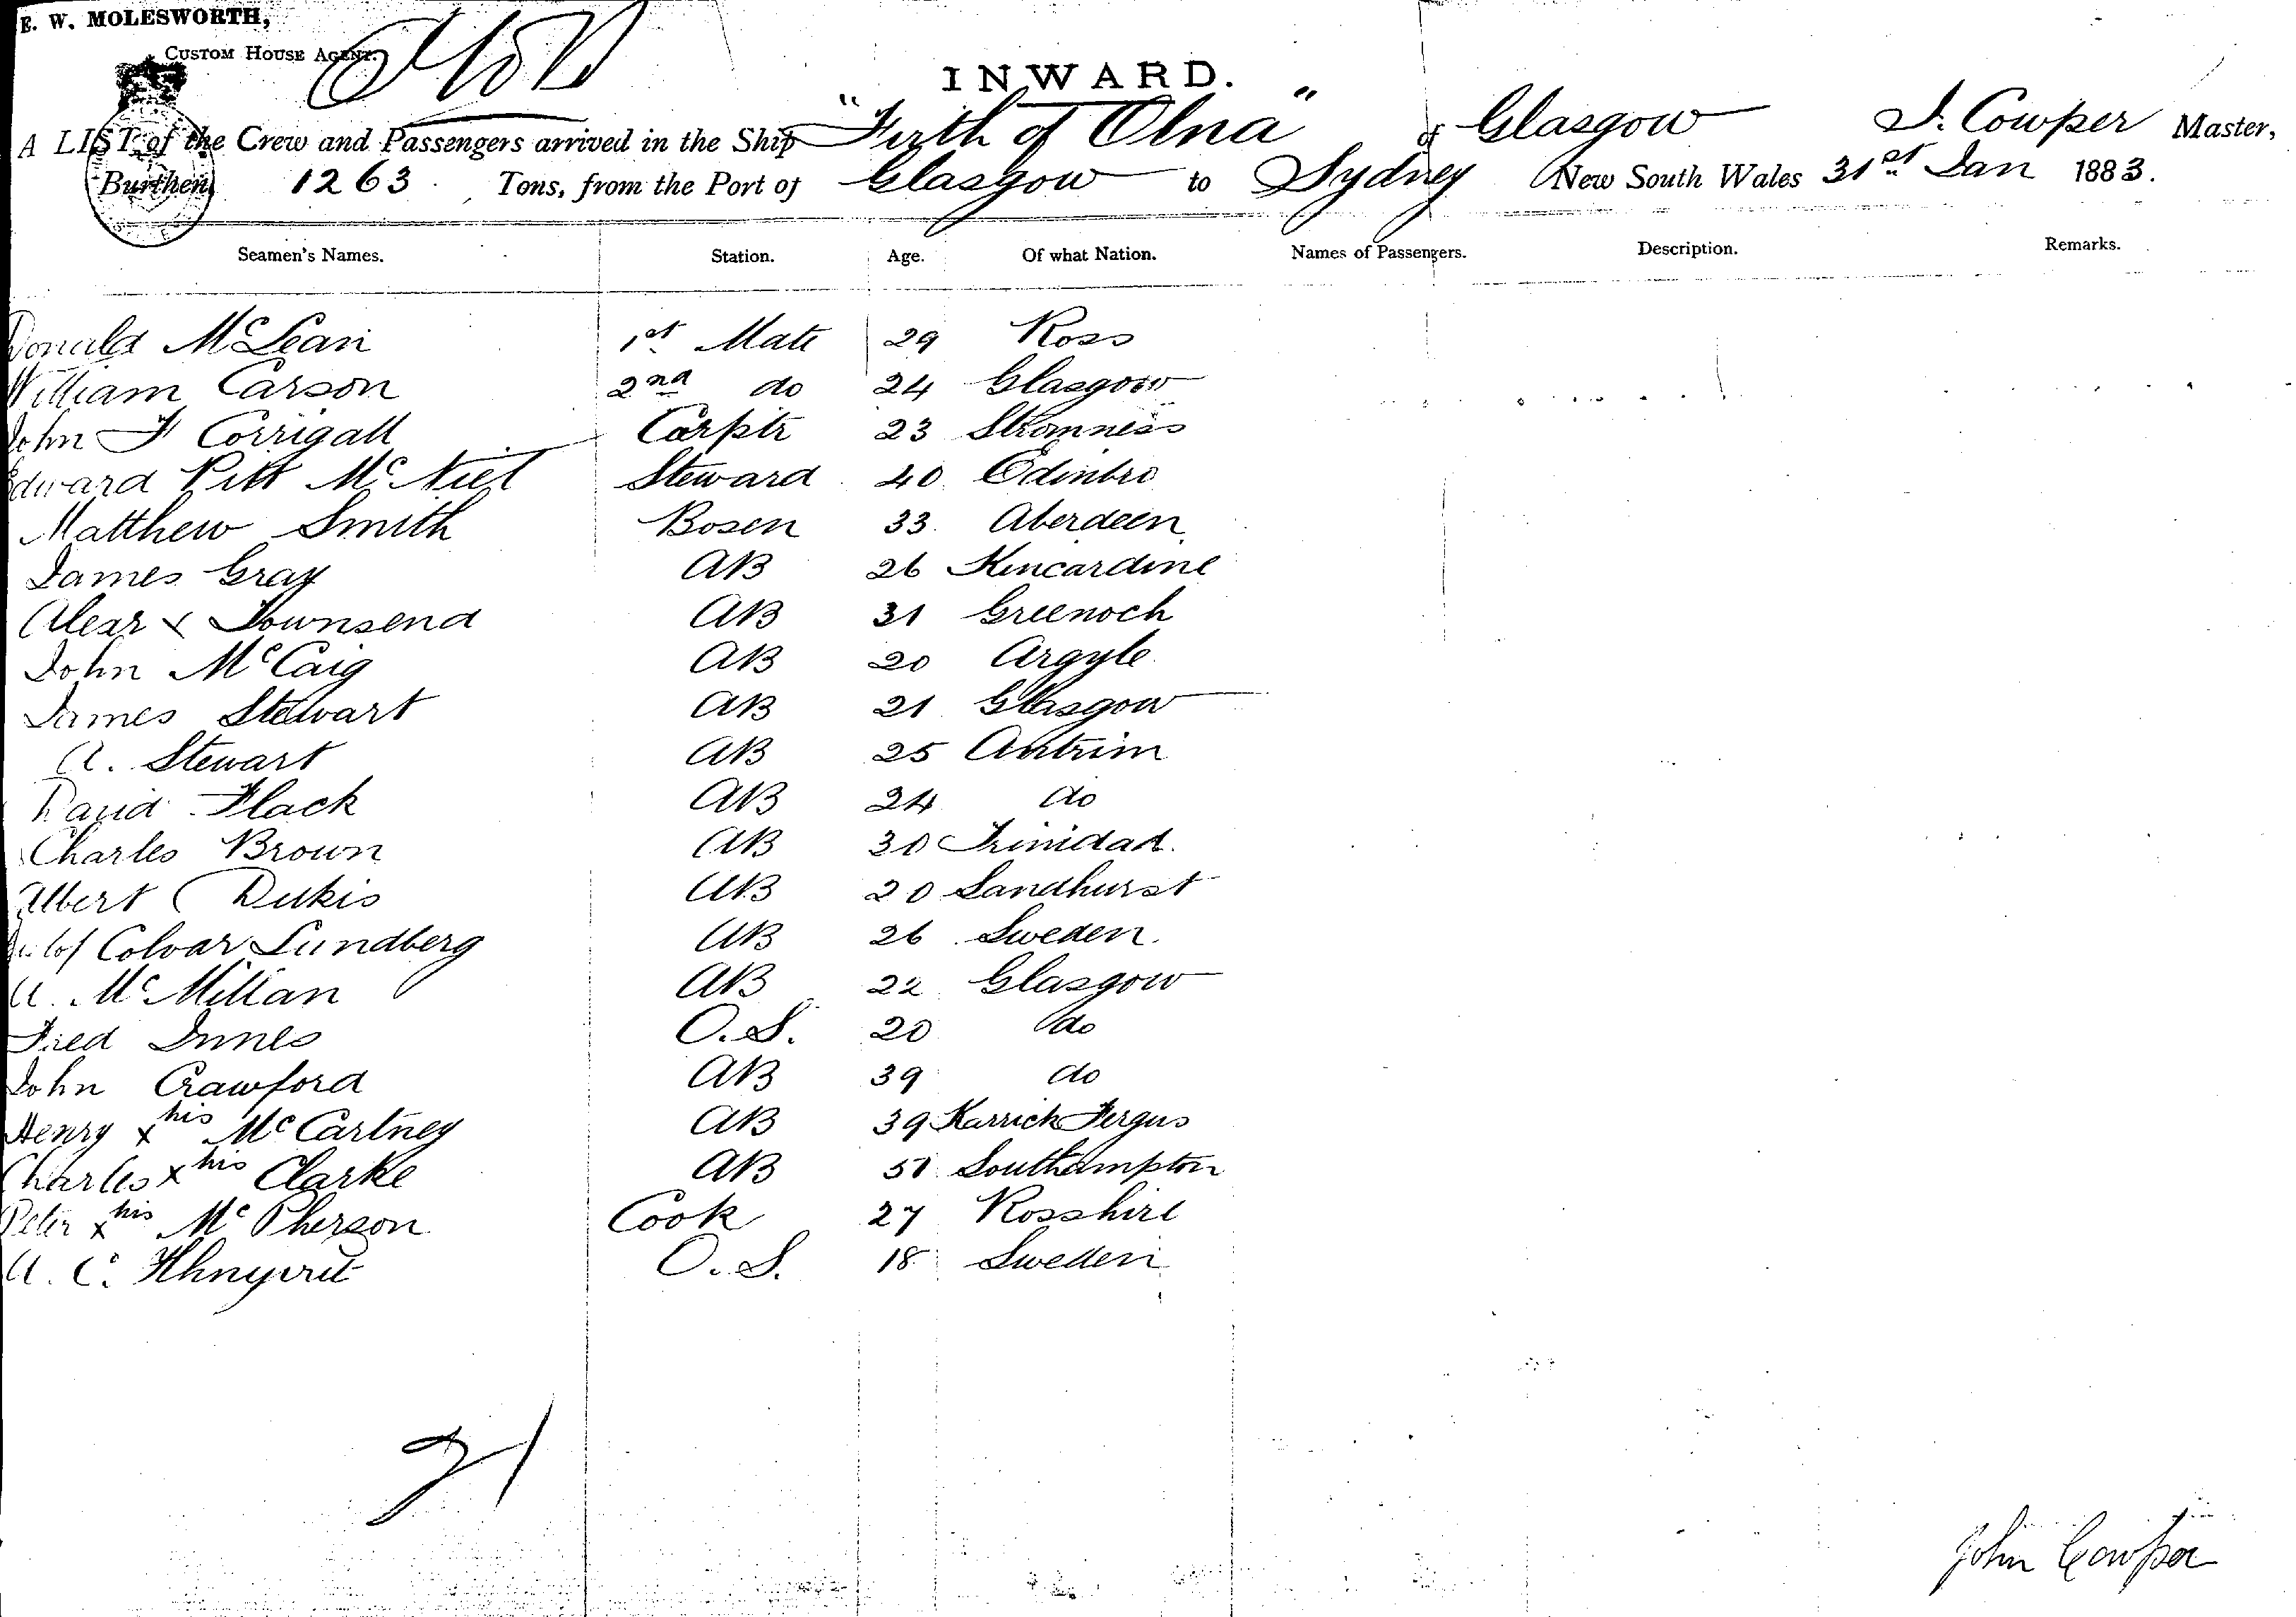 E. W. MOLESWORTH,
CUSTOM HOUSE AGENT.
INWARD.
A LIST of the Crew and Passengers arrived in the Ship "Firth of Olna" of Glasgow J. Cowper Master,
Burthen 1263 Tons, from the Port of Glasgow to Sydney New South Wales 31st Jan 1883.
Seamen's Names. Station. Age. Of what Nation. Names of Passengers. Description. Remarks.
Donald McLean 1st Mate 29 Ross
William Carson 2nd do 24 Glasgow
John F Corrigall Carptr 23 Stromness
Edward Pitt McNiel Steward 40 Edinbro
Matthew Smith Bosen 33 Aberdeen
James Gray AB 26 Kincardine
Alexr x Townsend AB 31 Greenoch
John McCaig AB 20 Argyle
James Stewart AB 21 Glasgow
A. Stewart AB 25 Antrim
David Flack AB 24 do
Charles Brown AB 30 Trinidad
Albert Dukis AB 20 Sandhurst
Colvar Lundberg AB 26 Sweden
A. McMillan AB 22 Glasgow
Fred Innes O.S. 20 do
John Crawford AB 39 do
Henry x his McCartney AB 39 Karrick Fergus
Charles x his Clarke AB 51 Southampton
Peter x his McPherson Cook 27 Rosshire
A. C. O.S. 18 Sweden
21
John Cowper